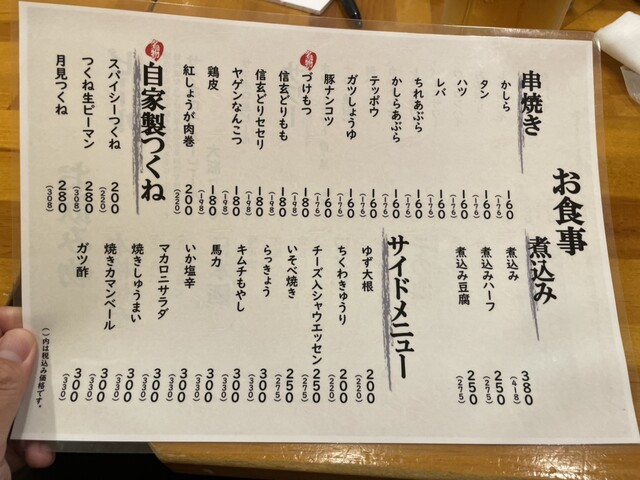 お食事
串焼き
かしら 160 (176)
タン 160 (176)
ハツ 160 (176)
レバ 160 (176)
ちれあぶら 160 (176)
かしらあぶら 160 (176)
テッポウ 160 (176)
ガツしょうゆ 160 (176)
豚ナンコツ 160 (176)
づけもつ 180 (198)
信玄どりもも 180 (198)
信玄どりセセリ 180 (198)
ヤゲンなんこつ 180 (198)
鶏皮 180 (198)
紅しょうが肉巻 200 (220)
自家製つくね
スパイシーつくね 200 (220)
つくね生ピーマン 280 (308)
月見つくね 280 (308)
煮込み
煮込み 380 (418)
煮込みハーフ 250 (275)
煮込み豆腐 250 (275)
サイドメニュー
ゆず大根 200 (220)
ちくわきゅうり 200 (220)
チーズ入シャウエッセン 250 (275)
いそべ焼き 250 (275)
らっきょう 300 (330)
キムチもやし 300 (330)
馬力 300 (330)
いか塩辛 300 (330)
マカロニサラダ 300 (330)
焼きしゅうまい 300 (330)
焼きカマンベール 300 (330)
ガツ酢 300 (330)
( )内は税込み価格です。